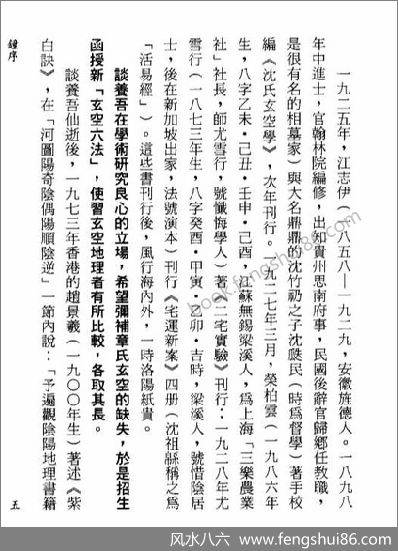 一九二五年，江志伊（一八五八—一九二九，安徽旌德人。一八九八
年中進士，官翰林院編修，出知貴州思南府事，民國後辭官歸鄉任教職，
是很有名的相墓家）與大名鼎鼎的沈竹礽之子沈瓞民（時為督學）著手校
編《沈氏玄空學》，次年刊行。一九二七年三月，榮柏雲（一九八六年
生，八字乙未·己丑·壬申·己酉，江蘇無錫梁溪人，為上海「三樂農業
社」社長，師尤雪行，號懺悔學人）著《二宅實驗》刊行：一九二八年尤
雪行（一八七三年生，八字癸酉·甲寅·乙卯·吉時，梁溪人，號惜陰居
士，後在新加坡出家，法號演本）刊行《宅運新案》四冊（沈祖緜稱之為
「活易經」）。這些書刊行後，風行海內外，一時洛陽紙貴。
談養吾在學術研究良心的立場，希望彌補章氏玄空的缺失，於是招生
函授新「玄空六法」，使習玄空地理者有所比較，各取其長。
談養吾仙逝後，一九七三年香港的趙景羲（一九〇〇年生）著述《紫
白訣》，在「河圖陽奇陰偶陽順陰逆」一節內說：「予遍觀陰陽地理書籍
鐘序
五
book.fengshui86.com
风水八六 - www.fengshui86.com